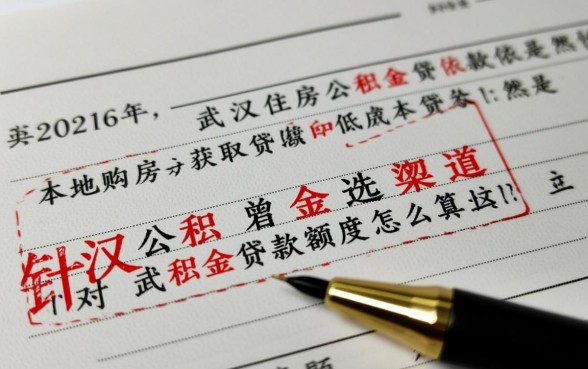 英20216年，武汉住房公积金贷依款依是然
本地购房获取贷 印低成本贷务!:然是
针汉公积曾金选渠道
不对 武积金贷款额度怎么算这!? 立
题